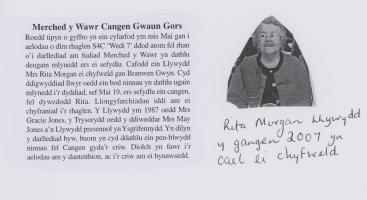 Merched y Wawr Cangen Gwaun Gors
Roedd tipyn o gyffro yn ein cyfarfod ym mis Mai gan i
aelodau o dîm rhaglen S4C 'Wedi 7' ddod atom fel rhan
o'i darllediad am fudiad Merched y Wawr yn dathlu
deugain mlynedd ers ei sefydlu. Cafodd ein Llywydd
Mrs Rita Morgan ei chyfweld gan Branwen Gwyn. Cyd
ddigwyddiad llwyr oedd ein bod ninnau yn dathlu ugain
mlynedd i'r dyddiad, sef Mai 19, ers sefydlu ein cangen,
fel dywedodd Rita. Llongyfarchiadau iddi am ei
chyfraniad i'r rhaglen. Y Llywydd ym 1987 oedd Mrs
Gracie Jones, y Trysorydd oedd y ddiweddar Mrs May
Jones a'n Llywydd presennol yn Ysgrifennydd. Yn dilyn
y darllediad byw, buom yn cyd ddathlu ein pen-blwydd
ninnau fel Cangen gyda'r criw. Diolch yn fawr i'r
aelodau am y danteithion, ac i'r criw am ei hynawsedd.
Rita Morgan Llywydd
y gangen 2007 yn
cael ei chyfweld